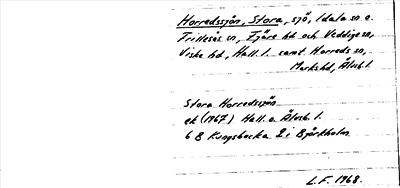 Horredssjön, Stora, sjö, Idala sn o.
Frillesås sn, Fjäre hd och Veddige sn,
Viske hd, Hall. l. samt Horreds sn,
Marks hd, Älvsb. l.
Stora Horredssjön
ek (1967) Hall. o. Älvsb. l.
6 B Kungsbacka 2 i Björkholm
L.F. 1968.